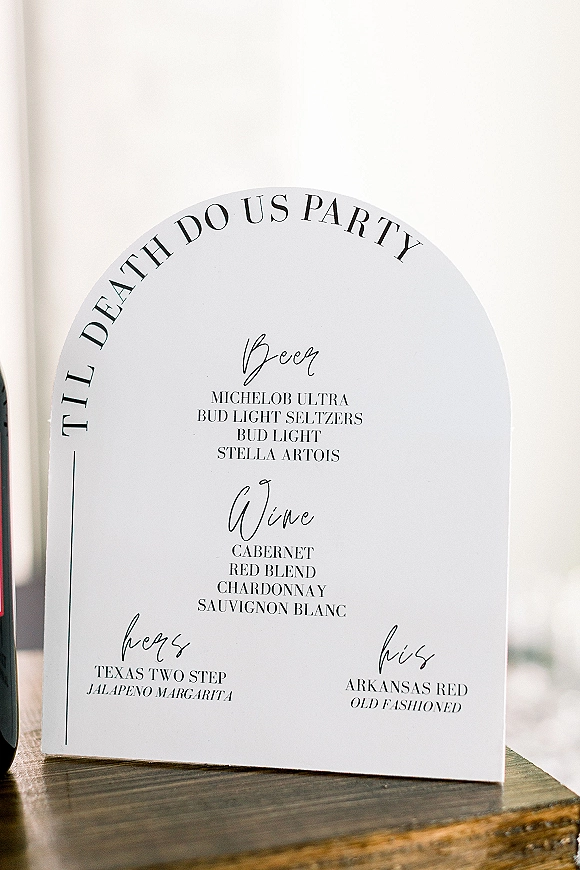 TIL DEATH DO US PARTY
Beer
MICHELOB ULTRA
BUD LIGHT SELTZERS
BUD LIGHT
STELLA ARTOIS
Wine
CABERNET
RED BLEND
CHARDONNAY
SAUVIGNON BLANC
hers
TEXAS TWO STEP
JALAPENO MARGARITA
his
ARKANSAS RED
OLD FASHIONED